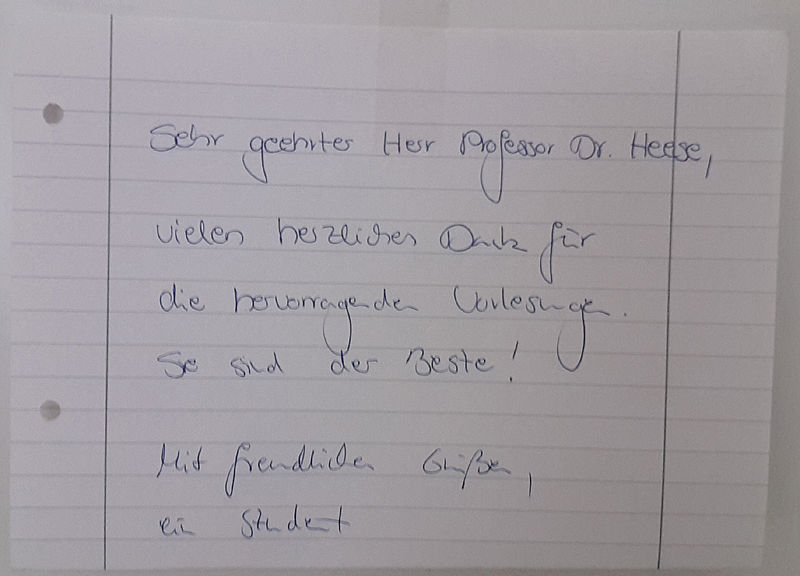 Sehr geehrter Herr Professor Dr. Heese,
vielen herzlichen Dank für
die hervorragenden Vorlesungen.
Sie sind der Beste!
Mit freundlichen Grüßen,
ein Student